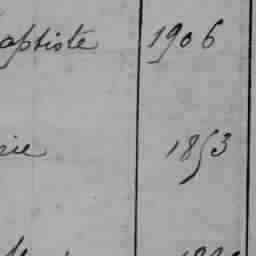 aptiste 1906
rie 1853